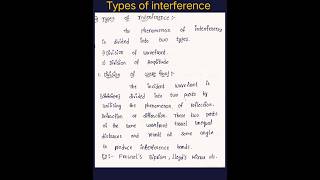 Types of interference
Types of Interference :-
The phenomenon of interference
is divided into two types.
i) Division of wavefront.
ii) Division of Amplitude
1. Division of wave front :-
The incident wavefront is
divided into two parts by
utilising the phenomenon of reflection,
refraction or diffraction. These two parts
of the same wavefront travel unequal
distances and reunite at some angle
to produce interference bands.
Ex :- Fresnel's Biprism, Lloyd's mirror etc.